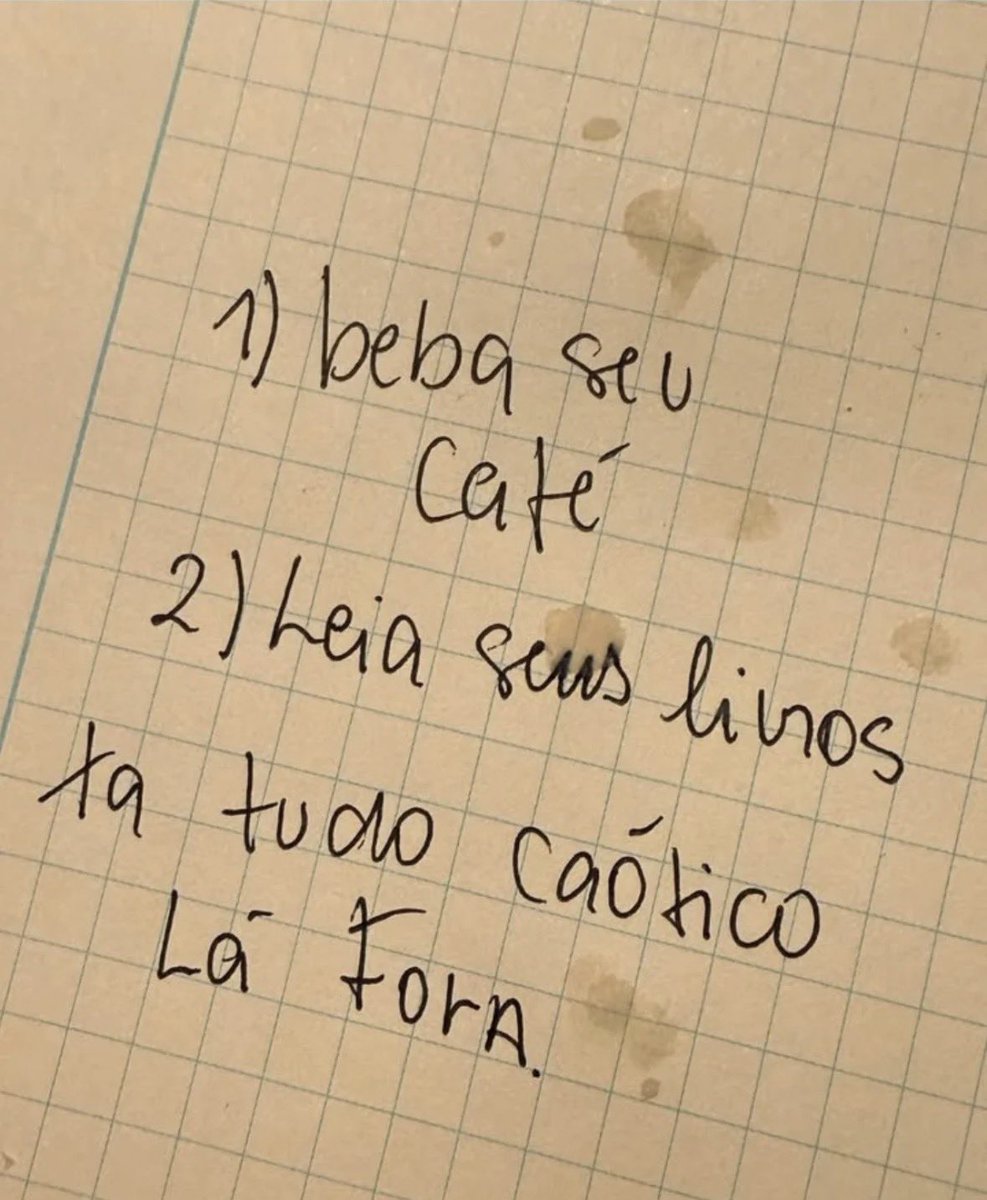 1) beba seu
café
2) Leia seus livros
ta tudo caótico
Lá Fora.